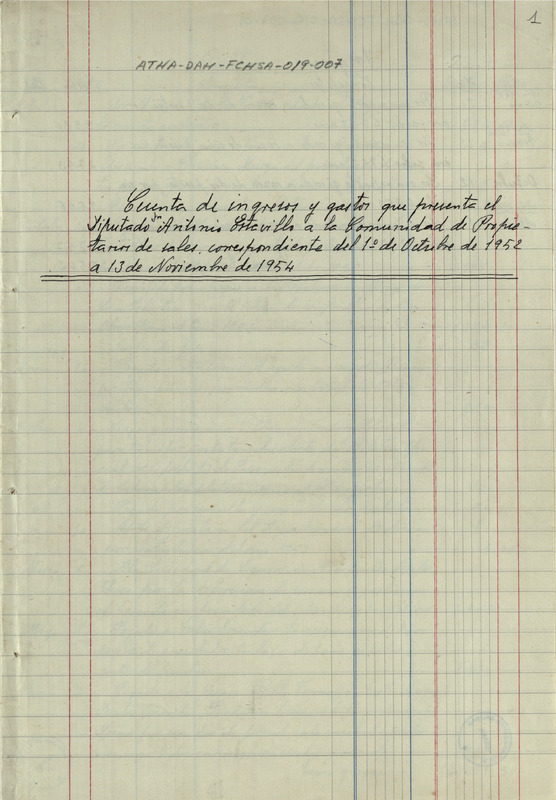 1
ATHA-DAH-FCHSA-019-007
Cuenta de ingresos y gastos que presenta el
Diputado Dn Antonio Estavillo a la Comunidad de Propie-
tarios de sales. correspondiente del 1º de Octubre de 1952
a 13 de Noviembre de 1954